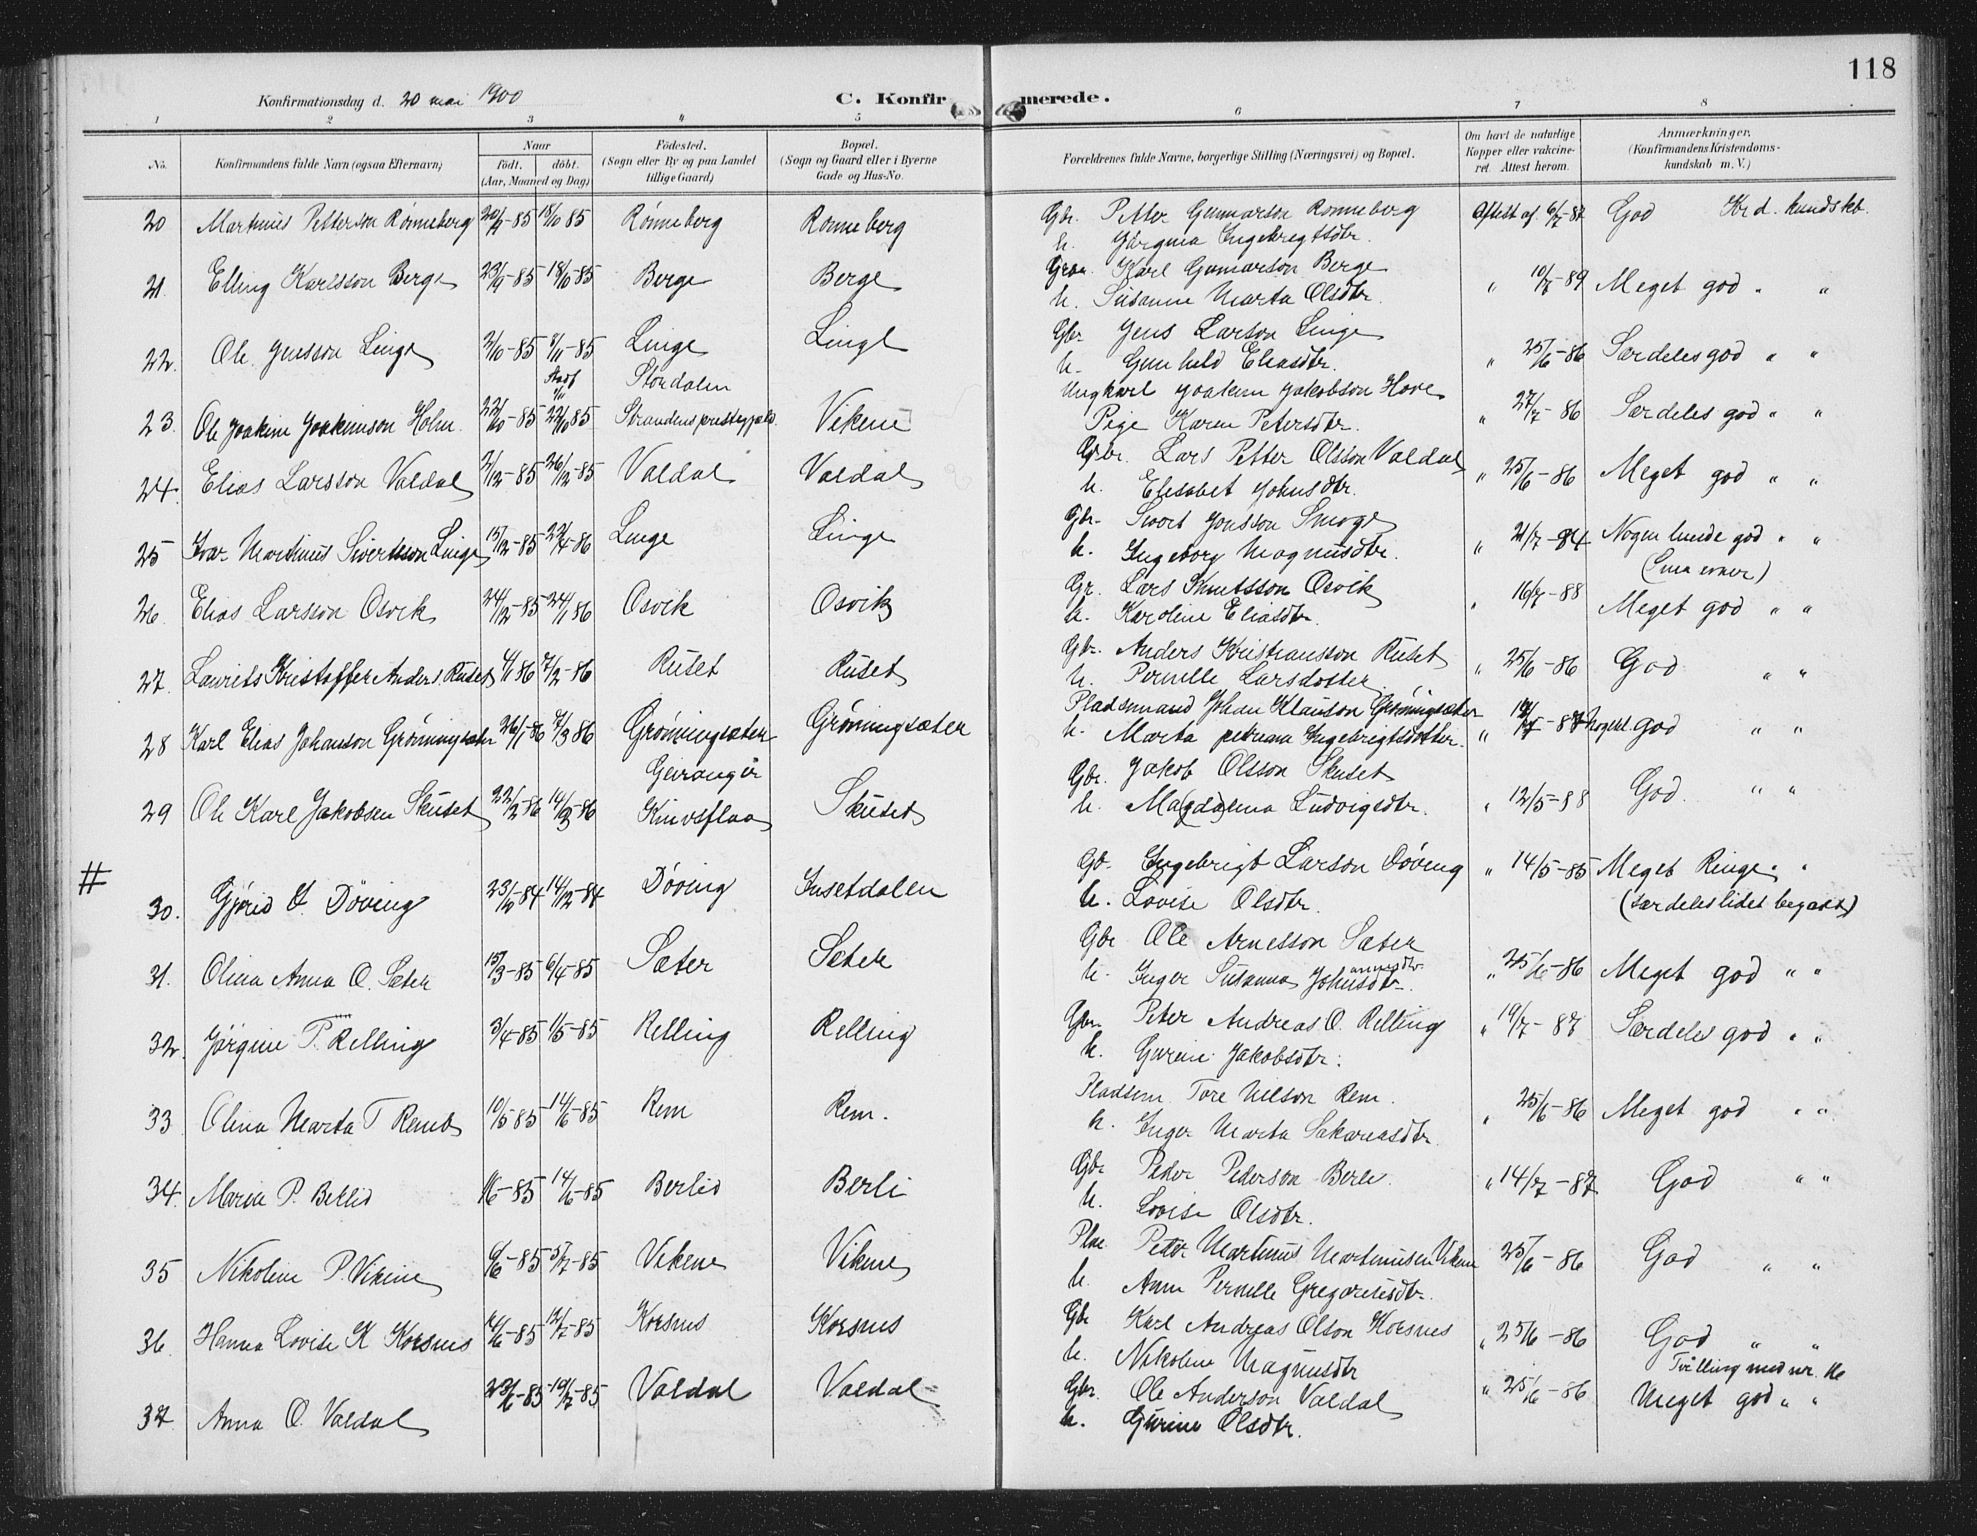 118
Konfirmationsdag d. 20 mai 1900 C. Konfirmerede.
1 2 3 4 5 6 7 8
No. Konfirmandens fulde Navn (ogsaa Efternavn) Naar født. døbt. (Aar, Maaned og Dag) Fødested. (Sogn eller By og paa Landet tillige Gaard) Bopæl. (Sogn og Gaard eller i Byerne Gade og Hus-No. Forældrenes fulde Navne, borgerlige Stilling (Næringsvei) og Bopæl. Om havt de naturlige Kopper eller vakcineret. Attest herom. Anmærkninger. (Konfirmandens Kristendomskundskab m. V.)
20 Martinus Petterson Rønneberg 20/9-85 18/10 85 Rønneberg Rønneberg Gbr. Petter Gunnarson Rønneberg Attest af 6/7-87 God Krd. kundskb.
h. Jørgina Ingebregtsdtr.
21 Elling Karlsson Berge 23/9-85 18/10-85 Berge Berge Gbr. Karl Gunnarson Berge " 10/7-89 Meget god " "
h. Susanne Marta Olsdtr.
22. Ole Jensson Linge 2/10-85 8/11-85 Linge Linge Gbr. Jens Larson Linge " 25/6-86 Særdeles god " "
h. Gunhild Eliasdtr.
23. Ole Joakim Joakimson Holm 22/10-85 Stadf 22/10 85 Stordalen Strandens prestegjæld. Vikene Ungkarl Joakim Jakobson Hove " 27/7-86 Særdeles god " "
Pige Karen Petersdtr.
24. Elias Larsson Valdal 2/12-85 26/12-85 Valdal Valdal Gbr. Lars Petter Olsson Valdal " 25/6-86 Meget god " "
h. Elisabet Johnsdtr.
25 Ivar Martinus Sivertsson Linge 15/12-85 22/4-86 Linge Linge Gbr. Sivert Jonsson Smoge " 21/7-84 Nogenlunde god " "
h. Ingeborg Magnusdtr. (Smaa evner)
26. Elias Larsson Osvik 24/12-85 24/1 86 Osvik Osvik Gr. Lars Knutsson Osvik " 16/7-88 Meget god " "
h. Karoline Eliasdtr.
27. Laurits Kristoffer Anders. Ruset 4/1 86 7/2-86 Ruset Ruset Gbr. Anders Kristiansson Ruset " 25/6-86 God " "
h. Pernille Larsdotter
28 Karl Elias Johanson Grønningsæter 26/1-86 7/3 86 Grønningsæter Grønningsæter Pladsmand Johan Klauson Grønningsæter
h. Marta Petrina Ingebregtsdotter. " God " "
29 Ole Karl Jakobsen Skuset 22/2-86 14/3-86 Geiranger Knivsflaa Skuset Gbr. Jakob Olsson Skuset " 12/5-88 God. " "
h. Ma(gda)lena Ludvigsdtr.
# 30. Gjørid I. Døving 23/10-84 14/12-84 Døving Insetdalen Gb. Ingebrigt Larson Døving " 14/5-85 Meget Ringe. "
h. Lovise Olsdtr. (særdeles lidet begavet)
31. Olina Anna O. Sæter 15/3-85 6/4-85 Sæter Sæter Gbr Ole Arnesson Sæter " 25/6-86 Meget god " "
h. Inger Susanna Johnsdtr.
32. Jørgine P. Relling 3/4-85 1/5-85 Relling Relling Gbr. Peter Andreas O. Relling " 19/7-87 Særdeles god " "
h. Gurine Jakobsdtr.
33 Olina Marta T Rem 10/5-85 14/6-85 Rem Rem. Pladsm. Tore Nilson Rem. " 25/6-86 Meget god " "
h. Inger Marta Sakariasdtr.
34. Marie P. Berlid 1/6-85 14/6-85 Berlid Berli Gbr Peder Pederson Berli. " 14/7-87 God " "
h. Lovise Olsdtr.
35 Nikoline P. Vikene 9/6-85 5/7-85 Vikene Vikene Plm. Peter Martinus Martinusen Vikene 25/6-86 God " "
h. Anne Pernille Gregoriusdtr.
36. Hanna Lovise K Korsnes 12/7-85 Korsnes Korsnes Gbr Karl Andreas Olson Korsnes " 25/6-86 God " "
h. Nikoline Magnusdtr Tvilling med nr. 16
37 Anna O. Valdal 23/6-85 19/7-85 Valdal Valdal Gbr. Ole Anderson Valdal " 25/6-86 Meget god " "
h. Gurine Olsdtr.